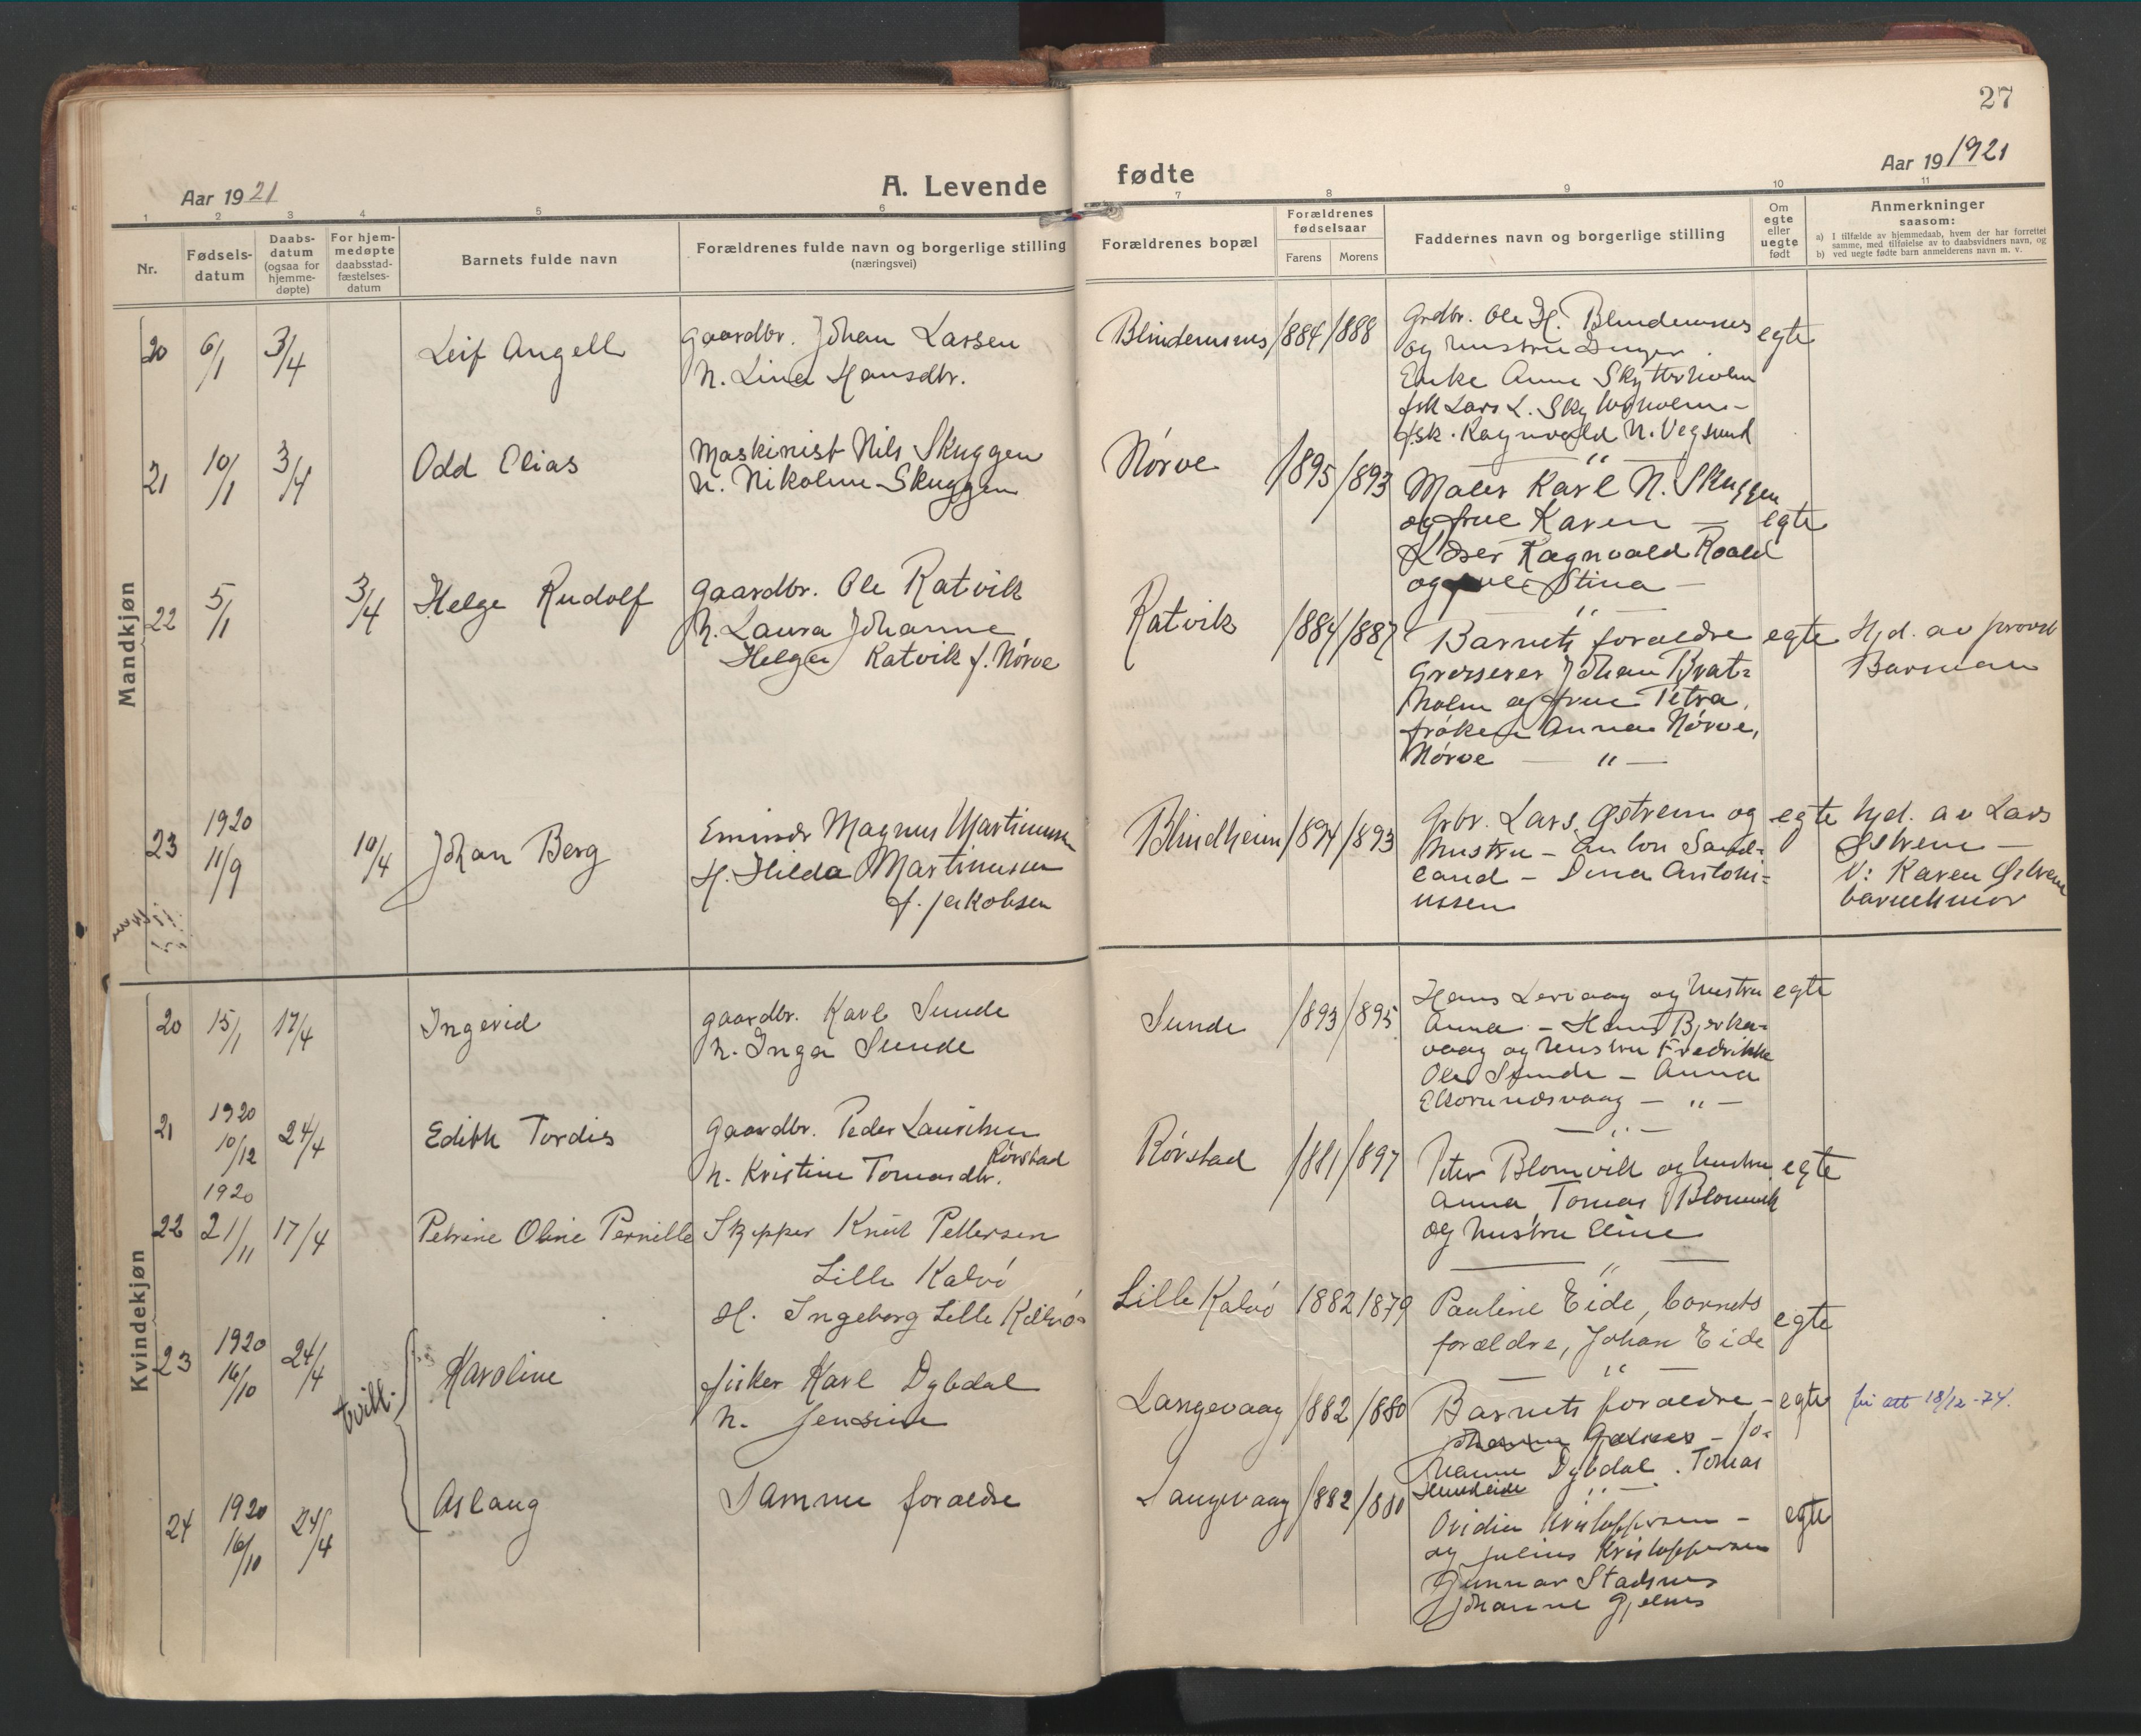 27
Aar 1921
A. Levende fødte
Aar 19 1921
1 2 3 4 5 6 7 8 9 10 11
Nr.
Fødsels-
datum
Daabs-
datum
(ogsaa for
hjemme-
døpte)
For hjem-
medøpte
daabsstad-
fæstelses-
datum
Barnets fulde navn
Forældrenes fulde navn og borgerlige stilling
(næringsvei)
Forældrenes bopæl
Forældrenes
fødselsaar
Farens Morens
Faddernes navn og borgerlige stilling
Om
egte
eller
uegte
født
Anmerkninger
saasom:
a) I tilfælde av hjemmedaab, hvem der har forrettet
samme, med tilføielse av to daabsvidners navn, og
b) ved uegte fødte barn anmelderens navn m. v.
Mandkjøn
20 6/1 3/4 Leif Angell
gaardbr. Johan Lassen
h. Lina Hansdtr.
Blindemsnes 1884 1888
Grdbr. Ole H. Blindemsnes
og hustru Inger
Enke Anna Skytterholm
fsk Lars L. Skytterholm -
fsk. Ragnvald N. Vegsund
egte
21 10/1 3/4 Odd Elias
Maskinist Nils Skuggen
h. Nikoline Skuggen
Nørve 1895 1893
Maler Karl N. Skuggen
og frue Karen —
Ragnvald Roald
og frue Stina —
egte
22 5/1 3/4 Helge Rudolf
gaardbr. Ole Ratvik
h. Laura Johanne
Helga Ratvik f. Nørve
Ratvik 1884 1887
Barnets forældre
Grosserer Johan Brat=
holm og frue Petra,
frøken Anna Nørve,
Nørve — " —
egte
Hjd. av provst
Barman
23 1920 11/9 10/4 Johan Berg
Magnus Martinussen
H. Hilda Martinussen
f. Jakobsen
Blindheim 1894 1893
Grbr. Lars Østrem og
hustru - Anton Sand=
land - Dina Antoni=
ussen
egte
hjd. av Lars
Østrem —
V: Karen Østrem
barnets mor
Kvindekjøn
20 15/1 17/4 Ingerid
gaardbr. Karl Sunde
h. Inga Sunde
Sunde 1893 1895
Hans Lervaag og hustru
Anna - Hans Bjørka=
vaag og hustru Fredrikke
Ole Sunde - Anna
— " —
egte
21 1920 10/12 24/4 Edith Tordis
Gaardbr. Peder Lauritsen
Rørstad
h. Kristine Tomasdtr.
Rørstad 1881 1897
Peter Blomvik og hustru
Anna, Tomas Blomvik
og hustru Eline
egte
22 1920 21/11 17/4 Petrine Oline Pernille
Skipper Knut Pettersen
Lille Kalvø
H. Ingeborg Lille Kalvø
Lille Kalvø 1882 1879
Pauline Eide, barnets
forældre, Johan Eide
egte
tvill.
23 1920 16/10 24/4 Karoline
fisker Karl Dybdal
h. Jensine
Langevaag 1882 1880
Barnets forældre -
Jo-
hanne Dybdal. Tomas
egte
fri att 18/12-74.
24 1920 16/10 24/4 Aslaug
Samme forældre
Langevaag 1882 1880
Ovidia Kristoffersen -
og Julius Kristoffersen
Gunnar Stadsnes
Johanne Gjelsnes
egte